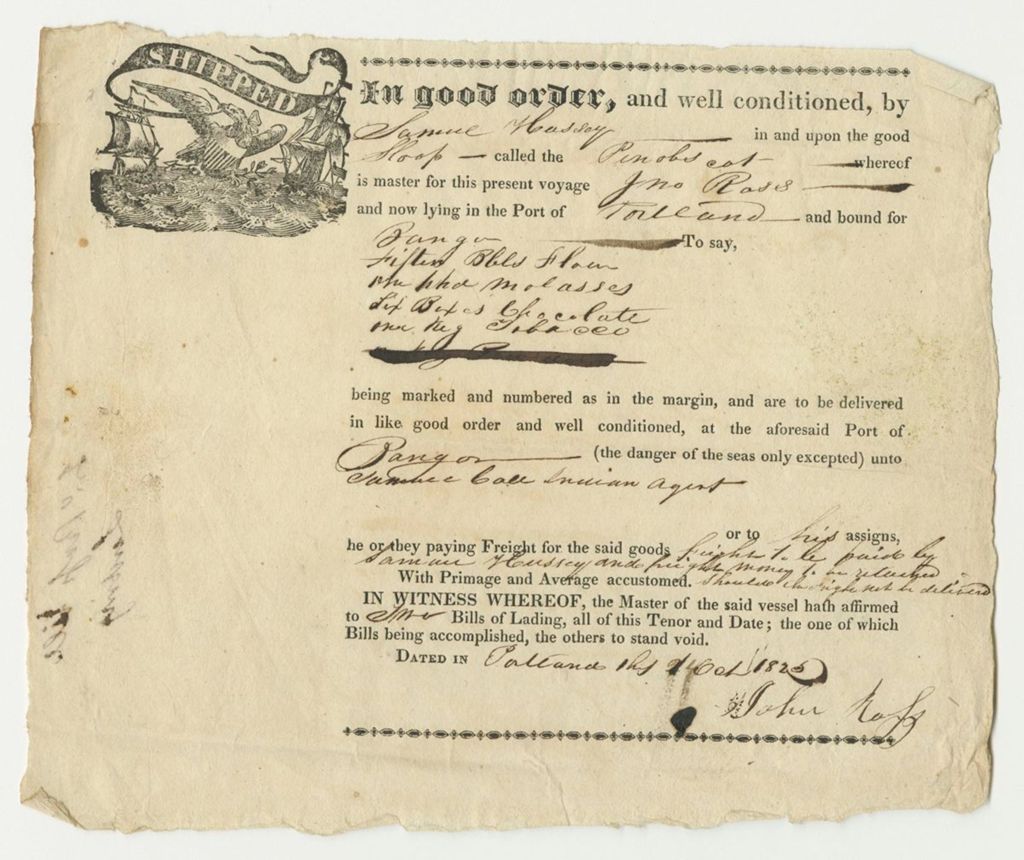 SHIPPED
In good order, and well conditioned, by
Samuel Hussey in and upon the good
Sloop called the Penobscot whereof
is master for this present voyage Jno Ross
and now lying in the Port of Portland and bound for
Bangor To say,
Fiften Bbls Flour
one hhd molasses
Six Boxes Chocolate
one Keg Tobacco
being marked and numbered as in the margin, and are to be delivered
in like good order and well conditioned, at the aforesaid Port of
Bangor (the danger of the seas only excepted) unto
Samuel Call Indian agent
or to his assigns,
he or they paying Freight for the said goods freight to be paid by
Samuel Hussey and freight money to be returned
With Primage and Average accustomed. should not be delivered
IN WITNESS WHEREOF, the Master of the said vessel hath affirmed
to two Bills of Lading, all of this Tenor and Date; the one of which
Bills being accomplished, the others to stand void.
DATED IN Portland Oct 1825
John Ross